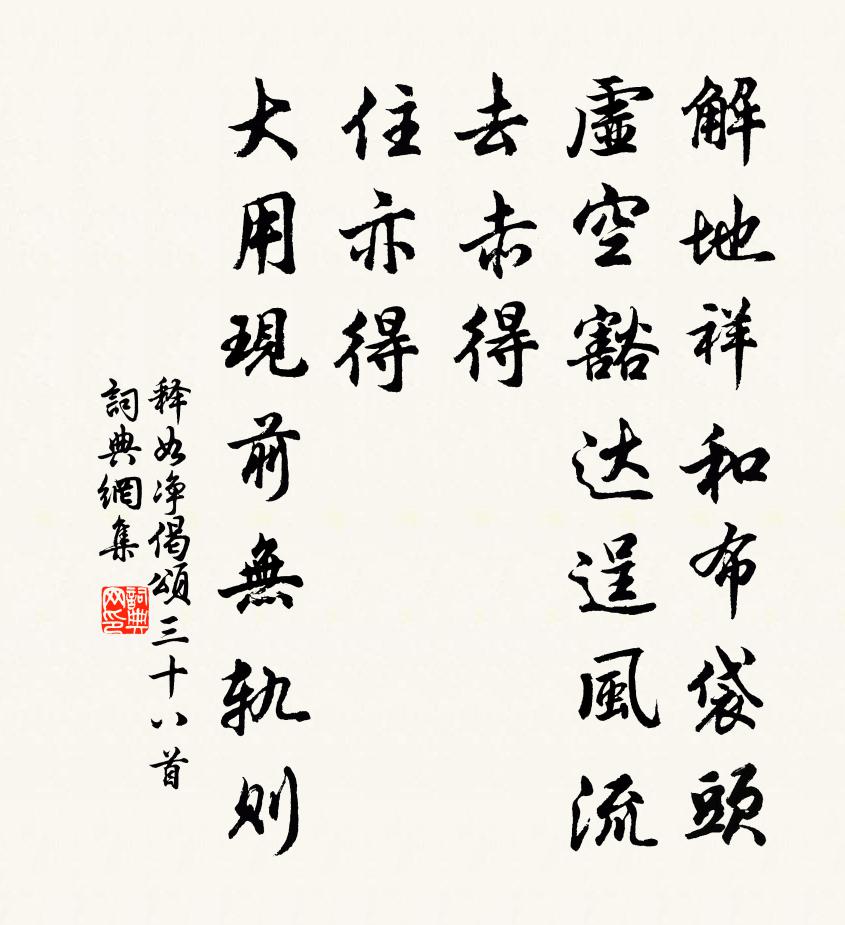 解地祥和布袋頭
虛空豁达逞風流
去赤得
住亦得
大用現前無軌则
释如净偈頌三十八首
詞典網集
詞典网印